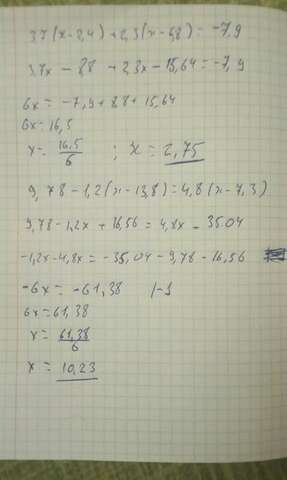 3.7(x-2,4)+2,3(x-6,8)=-7,9
3.7x-8,8+2,3x-15,64=-7,9
6x=-7,9+8,8+15,64
6x=16,5
x=16,5/6; x=2,75
9,78-1,2(x-13,8)=4,8(x-7,3)
9,78-1,2x+16,56=4,8x-35.04
-1,2x-4,8x=-35,04-9,78-16,56
-6x=-61,38 |-1
6x=61,38
x=61,38/6
x=10,23